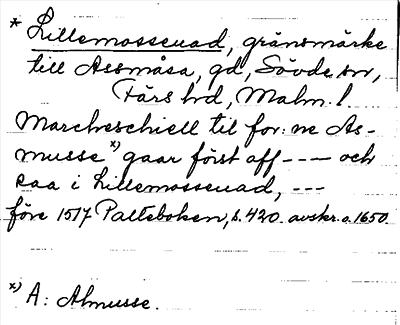 * Lillemosseuad, gränsmärke
till Assmåsa, gd, Sövde sn,
Färs hd, Malm. l
Marcheschiell til for:ne As-
musse *) gaar först aff --- och
saa i Lillemosseuad, ---
före 1517 Palteboken, s. 420. avskr. o. 1650.
*) A: Almusse.